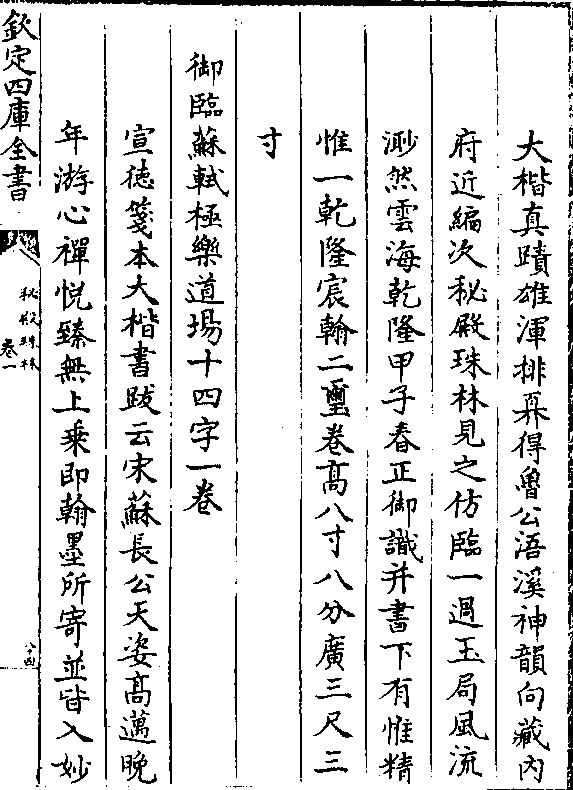 大楷真蹟雄渾排奡得魯公浯溪神韻向藏内
府近編次秘殿珠林見之仿臨一過玉局風流
渺然雲海乾隆甲子春正御識并書下有惟精
惟一乾隆宸翰二璽卷高八寸八分廣三尺三
寸
御臨蘇軾極樂道場十四字一卷
宣徳箋本大楷書跋云宋蘇長公天姿高邁晚
年游心禪悅臻無上乗即翰墨所寄並皆入妙
欽定四庫全書
秘殿珠林
卷一